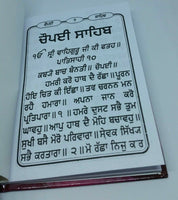 ਚੌਪਈ ਸਾਹਿਬ
ਚੌਪਈ ਸਾਹਿਬ
ੴ ਸ੍ਰੀ ਵਾਹਿਗੁਰੂ ਜੀ ਕੀ ਫਤਹ॥
ਪਾਤਿਸ਼ਾਹੀ ੧੦
ਕਬਯੋ ਬਾਚ ਬੇਨਤੀ॥ ਚੌਪਈ॥
ਹਮਰੀ ਕਰੋ ਹਾਥ ਦੈ ਰੱਛਾ॥ਪੂਰਨ
ਹੋਇ ਚਿਤ ਕੀ ਇੱਛਾ॥ ਤਵ ਚਰਨਨ ਮਨ
ਰਹੈ ਹਮਾਰਾ॥ ਅਪਨਾ ਜਾਨ ਕਰੋ
ਪ੍ਰਤਿਪਾਰਾ॥੧॥ ਹਮਰੇ ਦੁਸਟ ਸਭੈ ਤੁਮ
ਘਾਵਹੁ॥ ਆਪੁ ਹਾਥ ਦੈ ਮੋਹਿ ਬਚਾਵਹੁ॥
ਸੁਖੀ ਬਸੈ ਮੋਰੋ ਪਰਿਵਾਰਾ॥ਸੇਵਕ ਸਿੱਖ੍ਯ
ਸਭੈ ਕਰਤਾਰਾ॥੨॥ਮੋ ਰੱਛਾ ਨਿਜੁ ਕਰ